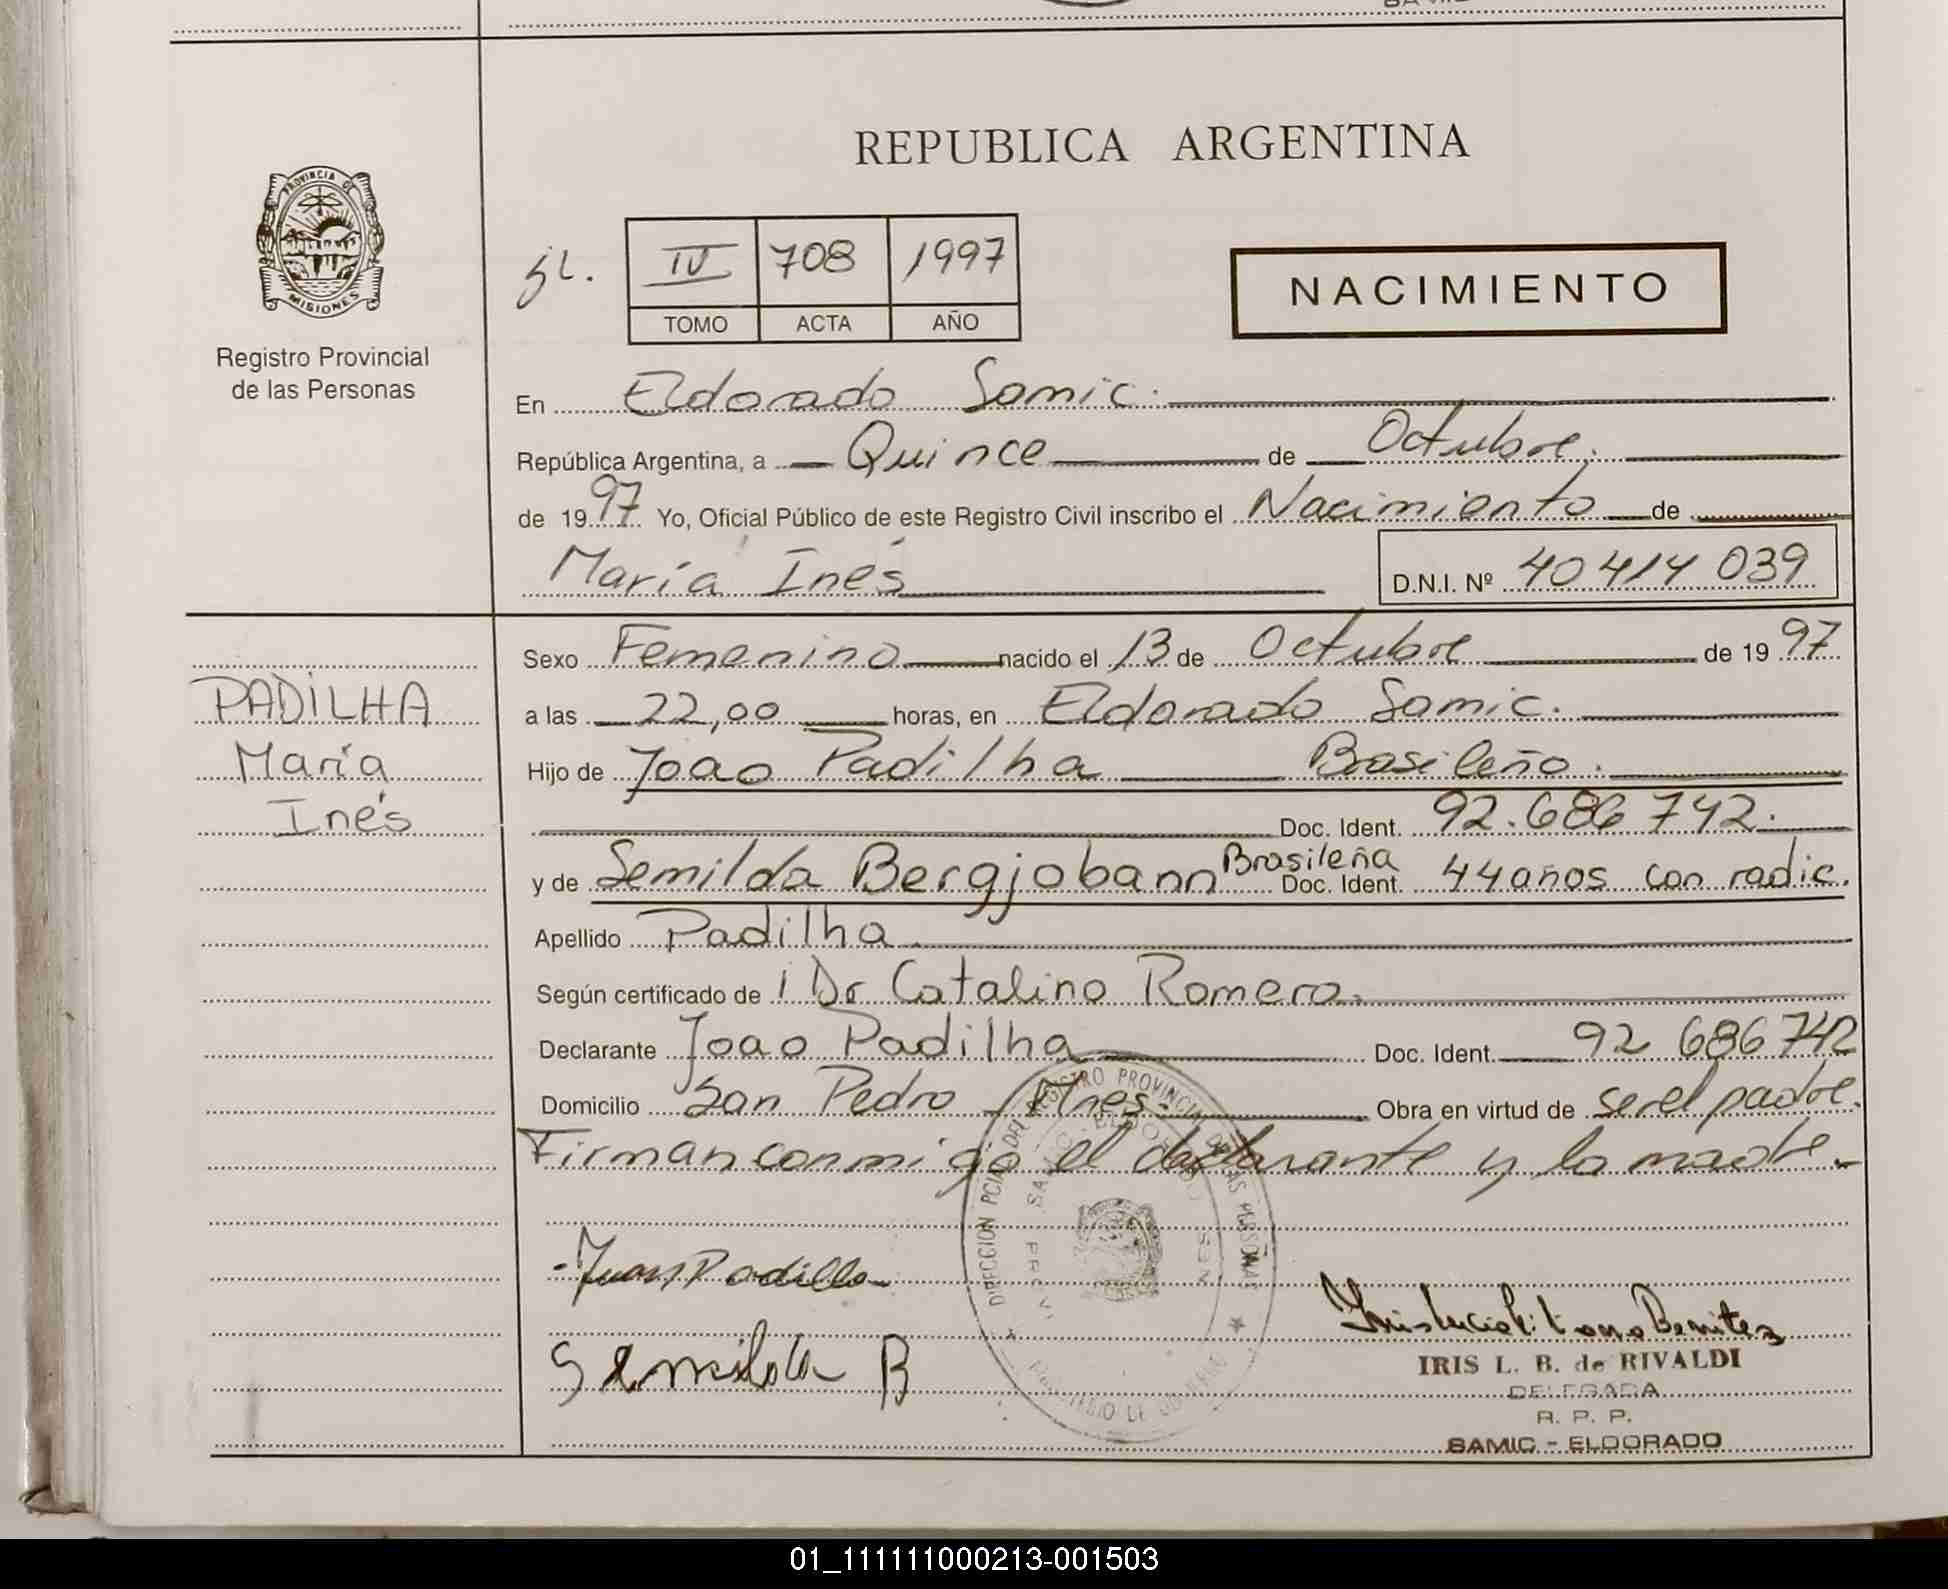 REPUBLICA ARGENTINA
PROVINCIA DE
MISIONES
Registro Provincial
de las Personas
IV 708 1997
TOMO ACTA AÑO
NACIMIENTO
En Eldorado Samic.
República Argentina, a Quince de Octubre.
de 1997 Yo, Oficial Público de este Registro Civil inscribo el Nacimiento de
María Inés D.N.I. Nº 40 414 039
Sexo Femenino nacido el 13 de Octubre de 1997
PADILHA
María
Inés
a las 22,00 horas, en Eldorado Samic.
Hijo de Joao Padilha Brasileño.
Doc. Ident. 92.686 742.
y de Semilda Bergjobann Brasileña Doc. Ident. 44 años con radic.
Apellido Padilha
Según certificado de Dr Catalino Romero.
Declarante Joao Padilha Doc. Ident. 92 686 742
Domicilio San Pedro Mnes. Obra en virtud de ser el padre.
Firman conmigo el declarante y la madre
Juan Padilla
Semilda B
DIRECCION PCIAL DEL REGISTRO PROVINCIAL DE LAS PERSONAS
IRIS L. B. de RIVALDI
DELEGADA
R. P. P.
SAMIC - ELDORADO
01_111111000213-001503